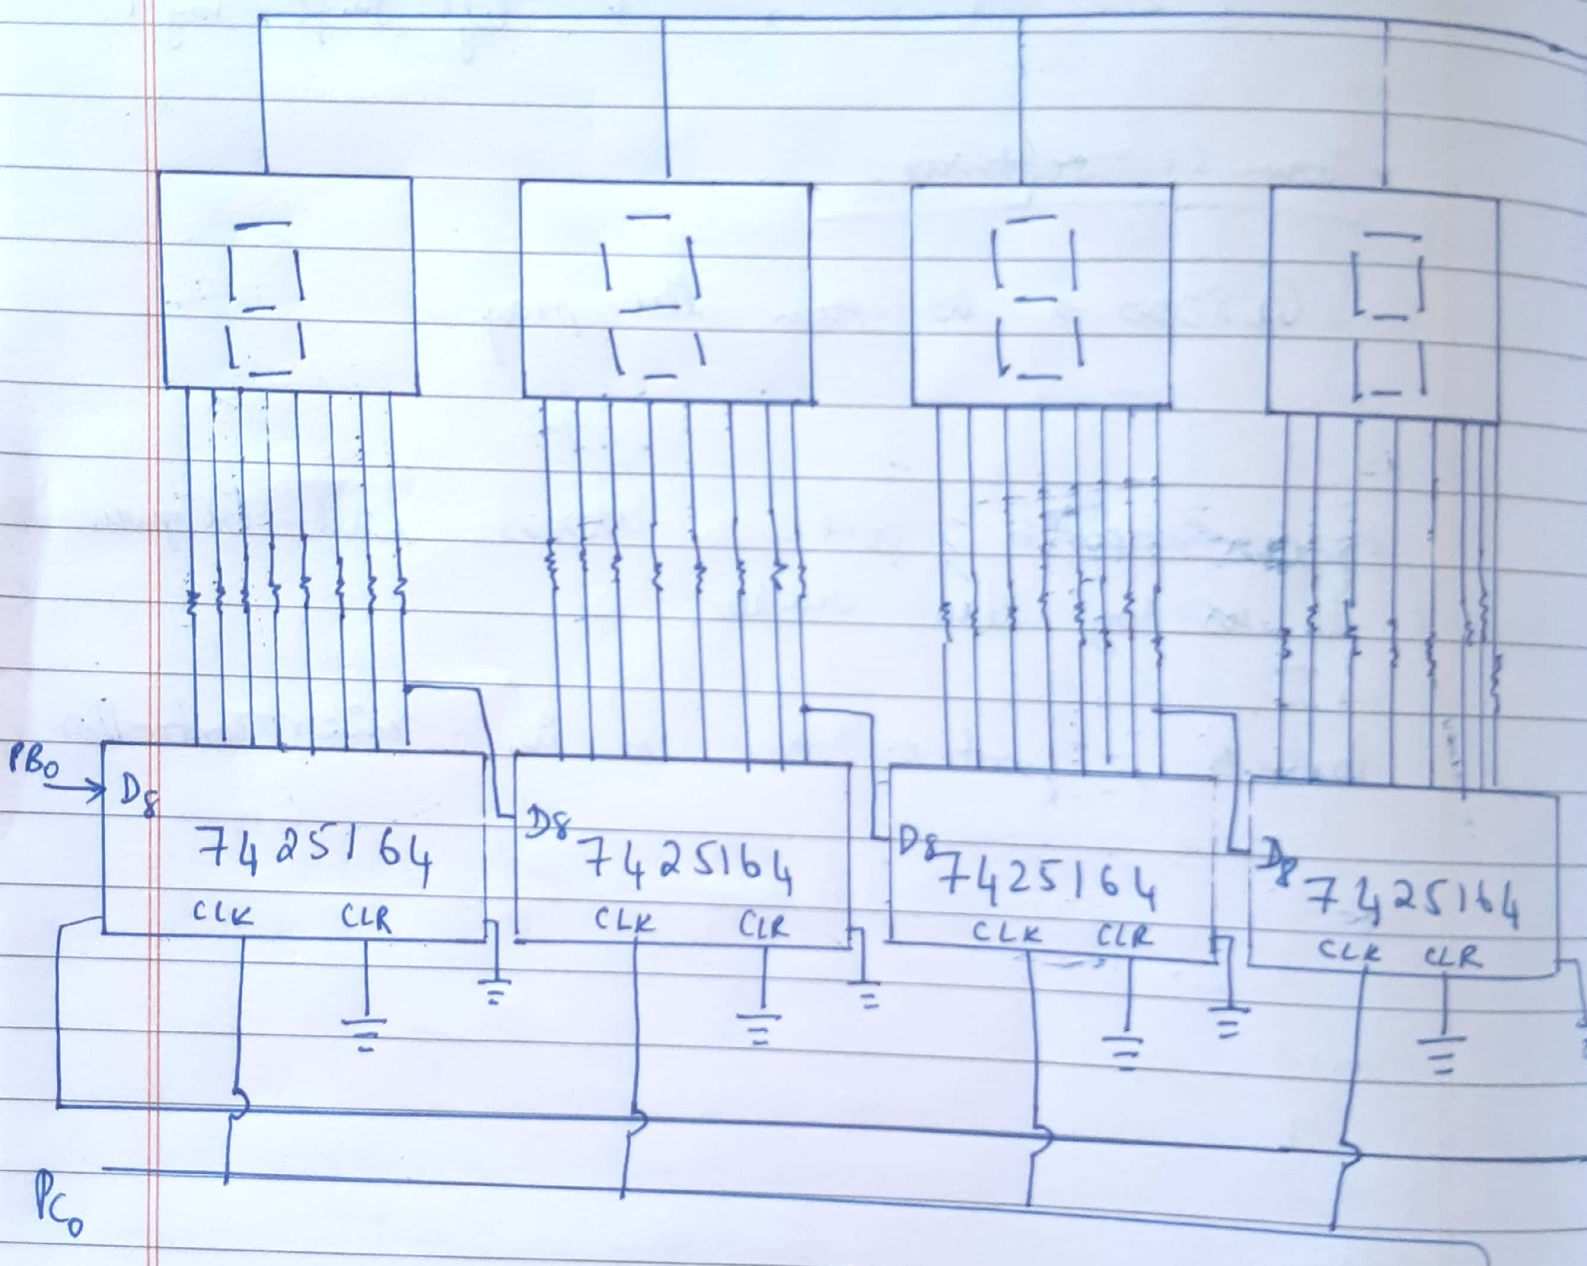 PB0
D8
7425164
CLK CLR
D8
7425164
CLK CLR
D8
7425164
CLK CLR
D8
7425164
CLK CLR
PC0